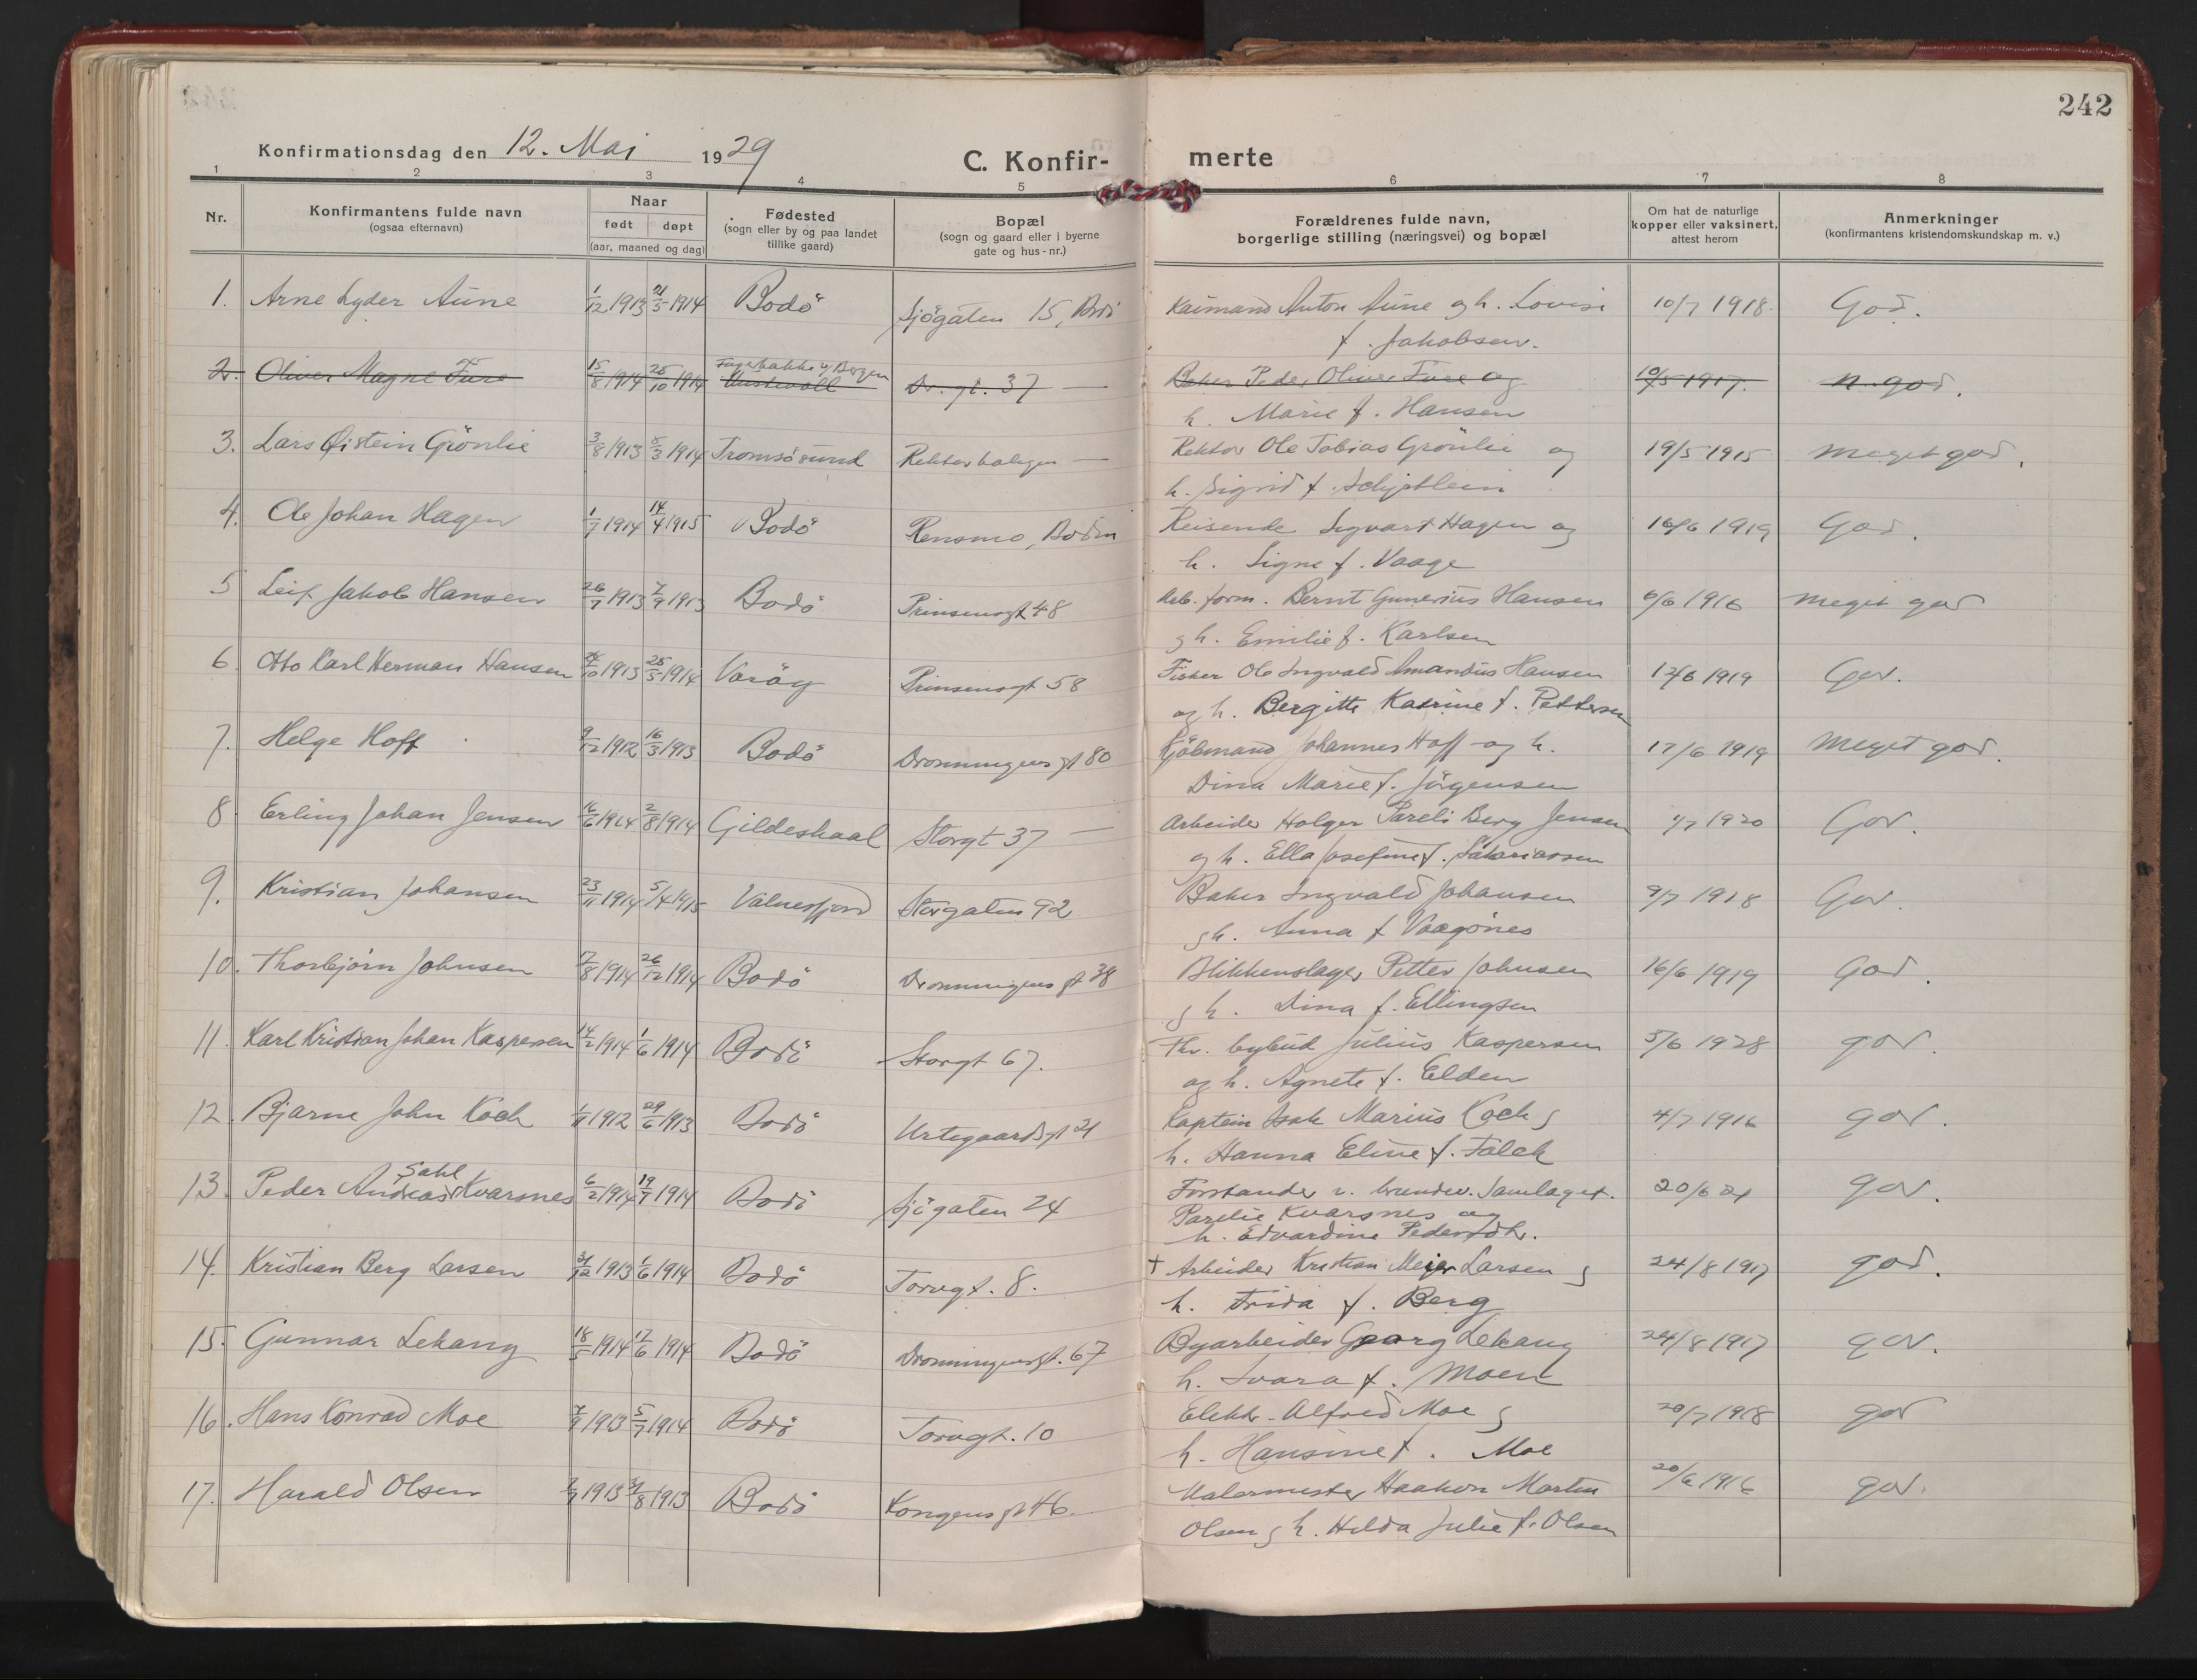 242
Konfirmationsdag den 12. Mai 1929
C. Konfir- merte
1 2 3 4 5 6 7 8
Nr.
Konfirmantens fulde navn
(ogsaa efternavn)
Naar
født døpt
(aar, maaned og dag)
Fødested
(sogn eller by og paa landet
tillike gaard)
Bopæl
(sogn og gaard eller i byerne
gate og hus-nr.)
Forældrenes fulde navn,
borgerlige stilling (næringsvei) og bopæl
Om hat de naturlige
kopper eller vaksinert,
attest herom
Anmerkninger
(konfirmantens kristendomskundskap m. v.)
1. Arne Lyder Aune 1/12 1913 21/5 1914 Bodö Sjögaten 15, Bodö Kaimand Anton Aune g h. Lovise 10/7 1918. God.
f. Jakobsen.
2. Oliver Magne Fure 15/8 1914 25/10 1914 Fagerbakke v/ Bergen Dr. gt. 37 — Baker Peder Oliver Fure og 10/5 1917. n. god.
h. Marie f. Hansen
3. Lars Øistein Grönlie 3/8 1913 8/3 1914 Tromsösund Rektorboligen — Rektor Ole Tobias Grönlie og 19/5 1915 Meget god.
h. Sigrid f.
4. Ole Johan Hagen 1/7 1914 14/4 1915 Bodö Rensmo, Bodin Reisende Sigvart Hagen og 16/6 1919 God.
h. Signe f. Vaage
5 Leif Jakob Hansen 26/7 1913 7/9 1913 Bodö Prinsensgt 48 Arb. form. Bernt Gunerius Hansen 6/6 1916 Meget god
g h. Emilie f. Karlsen
6. Otto Karl Herman Hansen 1913 25/5 1914 Varöy Prinsensgt 58 Fisker Ole Ingvald Amandus Hansen 12/6 1919 God.
og h. Bergitte Katrine f. Pettersen
7. Helge Hoff 9/12 1912 16/3 1913 Bodö Dronningens gt 80 Kjöbmand Johannes Hoff og h. 17/6 1919 Meget god.
Dina Marie f. Jörgensen
8 Erling Johan Jensen 16/6 1914 2/8 1914 Gildeskaal Storgt 37 — Arbeider Holger Pareli Berg Jensen 1/7 1920 God.
g h. Ella Josefine f. Sakariassen
9. Kristian Johansen 23/11 1914 5/4 1915 Valnesfjord Storgaten 92 Baker Ingvald Johansen 9/7 1918 God.
g h. Anna f Vaagönes
10. Thorbjørn Johnsen 17/8 1914 26/12 1914 Bodö Dronningens gt 38 Blikkenslager Petter Johnsen 16/6 1919 God.
g h. Dina f. Ellingsen
11. Karl Kristian Johan Kaspersen 14/2 1914 1/6 1914 Bodö Storgt 67. Julius Kaspersen 5/6 1928 god.
og h. Agnete f. Elden
12. Bjarne John Koch 1/11 1912 29/6 1913 Bodö Urtegaardsgt 21 Kaptein Isak Marius Koch g 4/7 1916 god.
h. Hanna Eline f. Falck
13. Peder Andreas Sahl Kvarsnes 6/2 1914 19/7 1914 Bodö Sjögaten 24 Forstander v. Samlaget. 20/6 21 god.
Parelie Kvarsnes og
h. Edvardine Pedersdtr.
14. Kristian Berg Larsen 31/12 1913 1/6 1914 Bodö Torvgt. 8. + Arbeider Kristian Meijer Larsen g 24/8 1917 god.
h. Frida f. Berg
15. Gunnar Lekang 18/5 1914 17/6 1914 Bodö Dronningensgt. 67 Byarbeider Georg Lekang 24/8 1917 god.
h. Svara f. Moen
16. Hans Konrad Moe 7/9 1913 5/7 1914 Bodö Torvgt. 10 Elektr. Alfred Moe g 20/7 1918 god
h. Hansine f. Moe
17. Harald Olsen 1913 31/8 1913 Bodö Kongens gt 46. Malermester Haakon Martin 20/6 1916 god.
Olsen g h. Hilda Julie f. Olsen